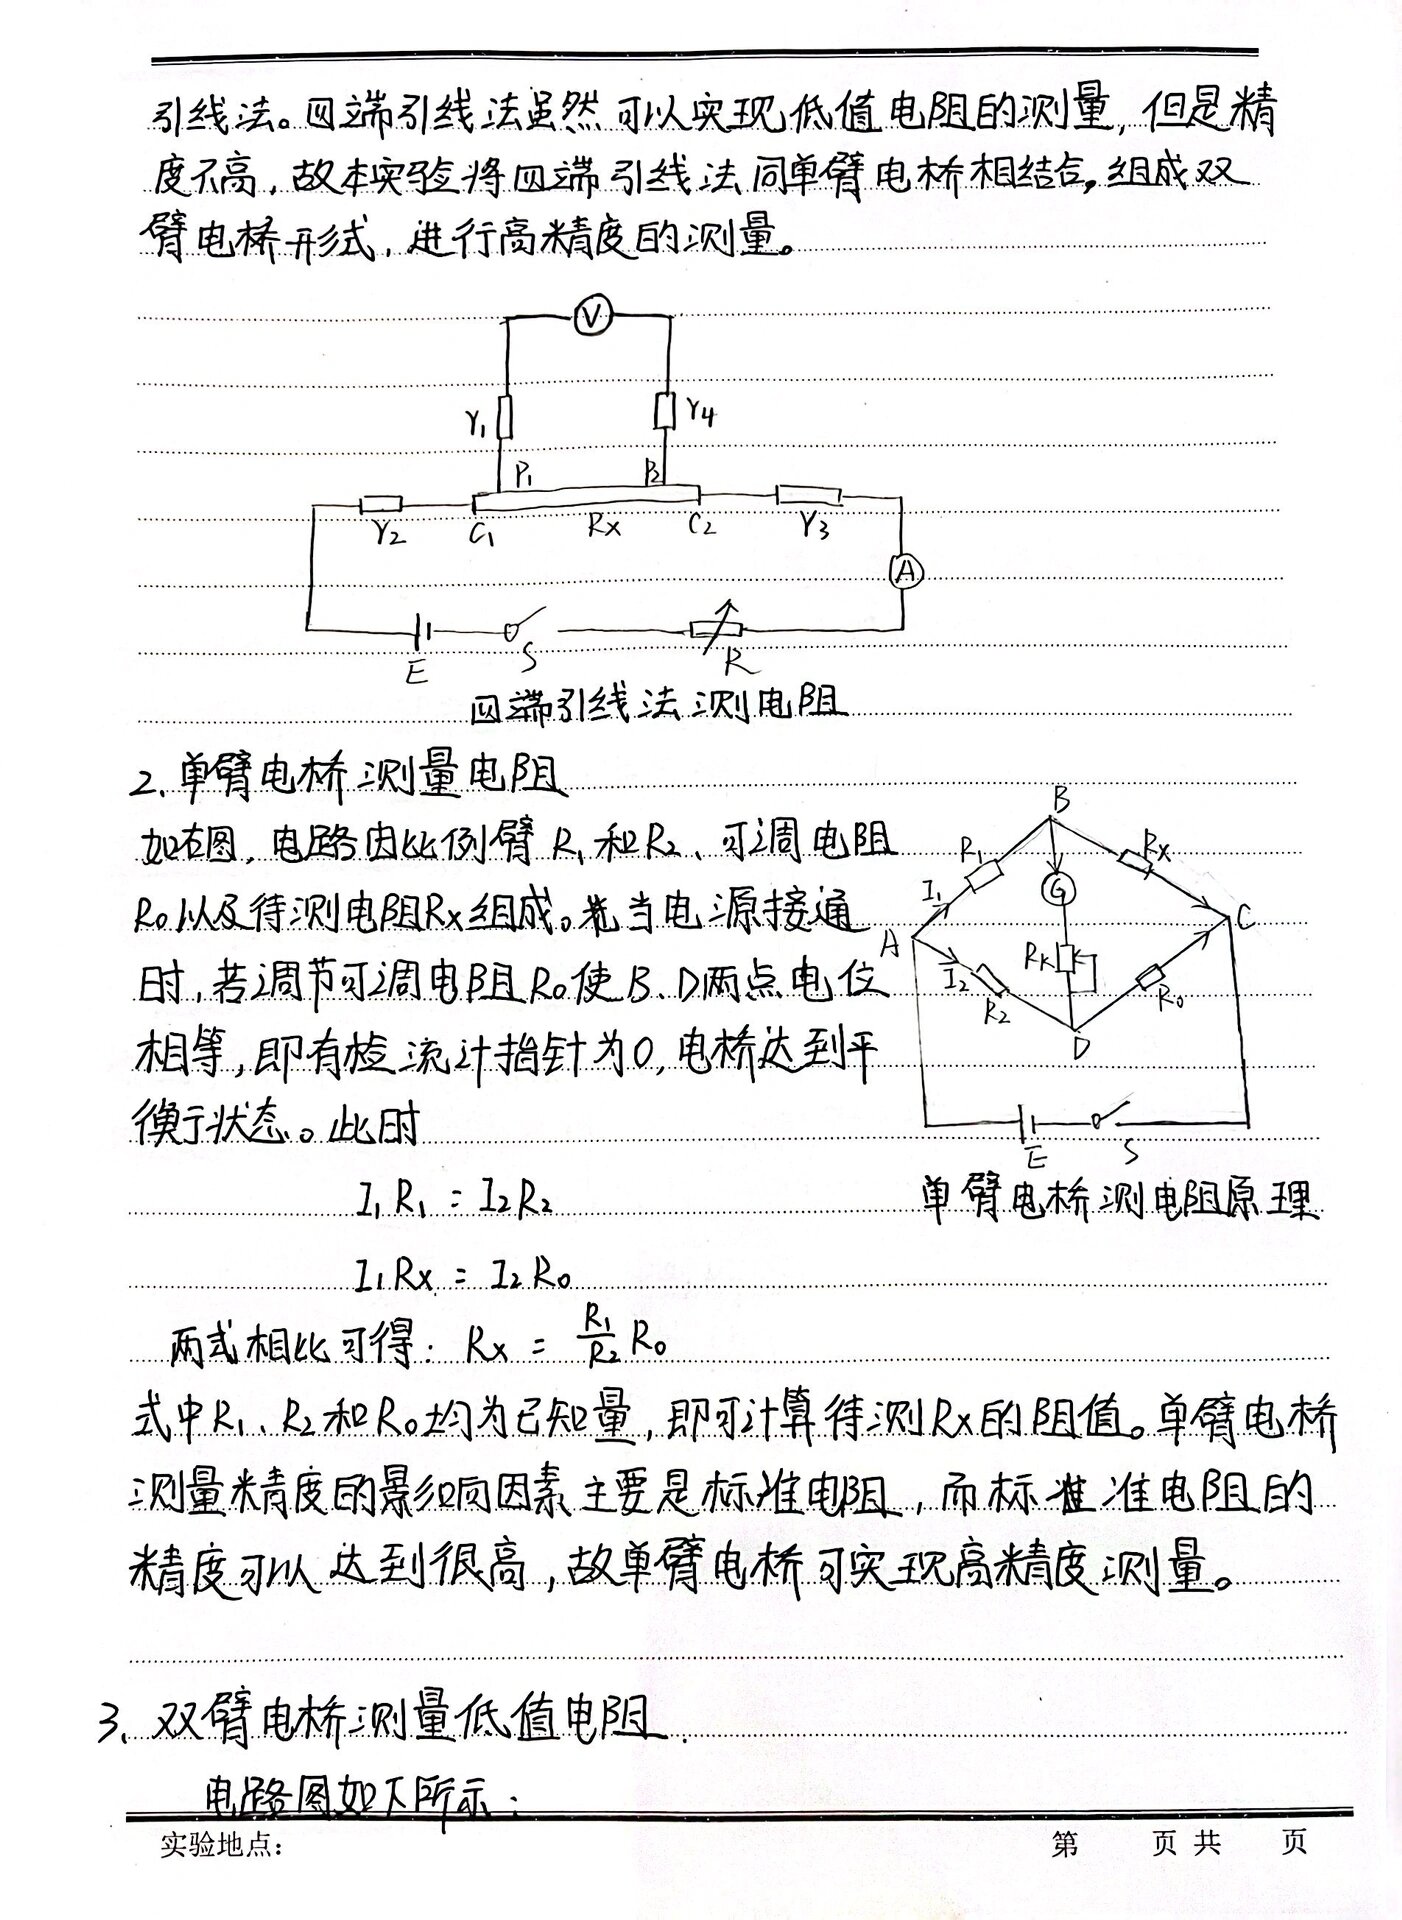 引线法。四端引线法虽然可以实现低值电阻的测量，但是精
度不高，故本实验将四端引线法同单臂电桥相结合，组成双
臂电桥形式，进行高精度的测量。
V
r1
r4
P1
P2
r2
C1
Rx
C2
r3
A
E
S
R
四端引线法测电阻
2.单臂电桥测量电阻
如右图，电路由比例臂R1和R2、可调电阻
R0以及待测电阻Rx组成。当电源接通
时，若调节可调电阻R0使B、D两点电位
相等，即有检流计指针为0，电桥达到平
衡状态。此时
B
R1
Rx
I1
G
A
C
RK
I2
R2
R0
D
E
S
单臂电桥测电阻原理
I1R1 = I2R2
I1Rx = I2R0
两式相比可得：Rx = R1/R2 R0
式中R1、R2和R0均为已知量，即可计算待测Rx的阻值。单臂电桥
测量精度的影响因素主要是标准电阻，而标准电阻的
精度可以达到很高，故单臂电桥可实现高精度测量。
3、双臂电桥测量低值电阻
电路图如下所示：
实验地点：
第 页 共 页